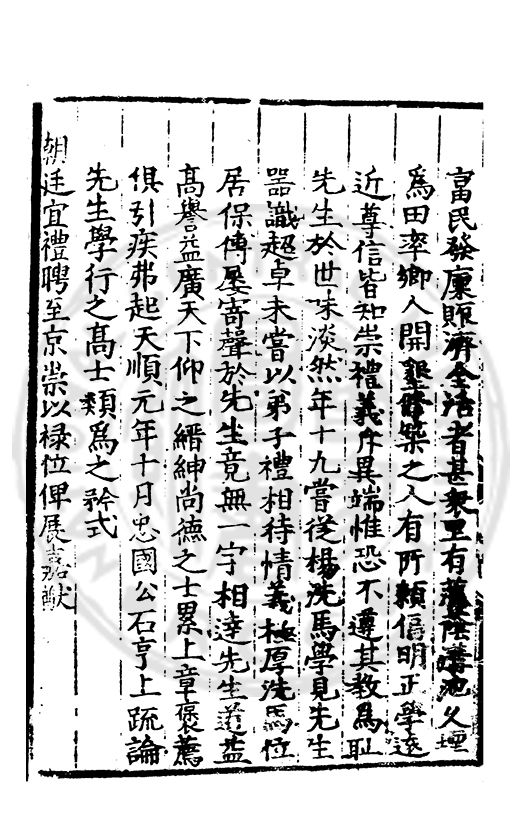 富民發廩賑濟全活者甚衆里有舊陂塘池久堙
爲田率鄉人開墾脩築之人有所賴倡明正學遠
近尊信皆知崇禮義斥異端惟恐不遵其教爲耻
先生於世味淡然年十九嘗從楊洗馬學見先生
器識超卓未嘗以弟子禮相待情義極厚洗馬位
居保傅屢寄聲於先生竟無一字相達先生道益
高譽益廣天下仰之縉紳尚德之士累上章褒薦
俱引疾弗起天順元年十月忠國公石亨上疏論
先生學行之高士類爲之矜式
朝廷宜禮聘至京崇以祿位俾展嘉猷